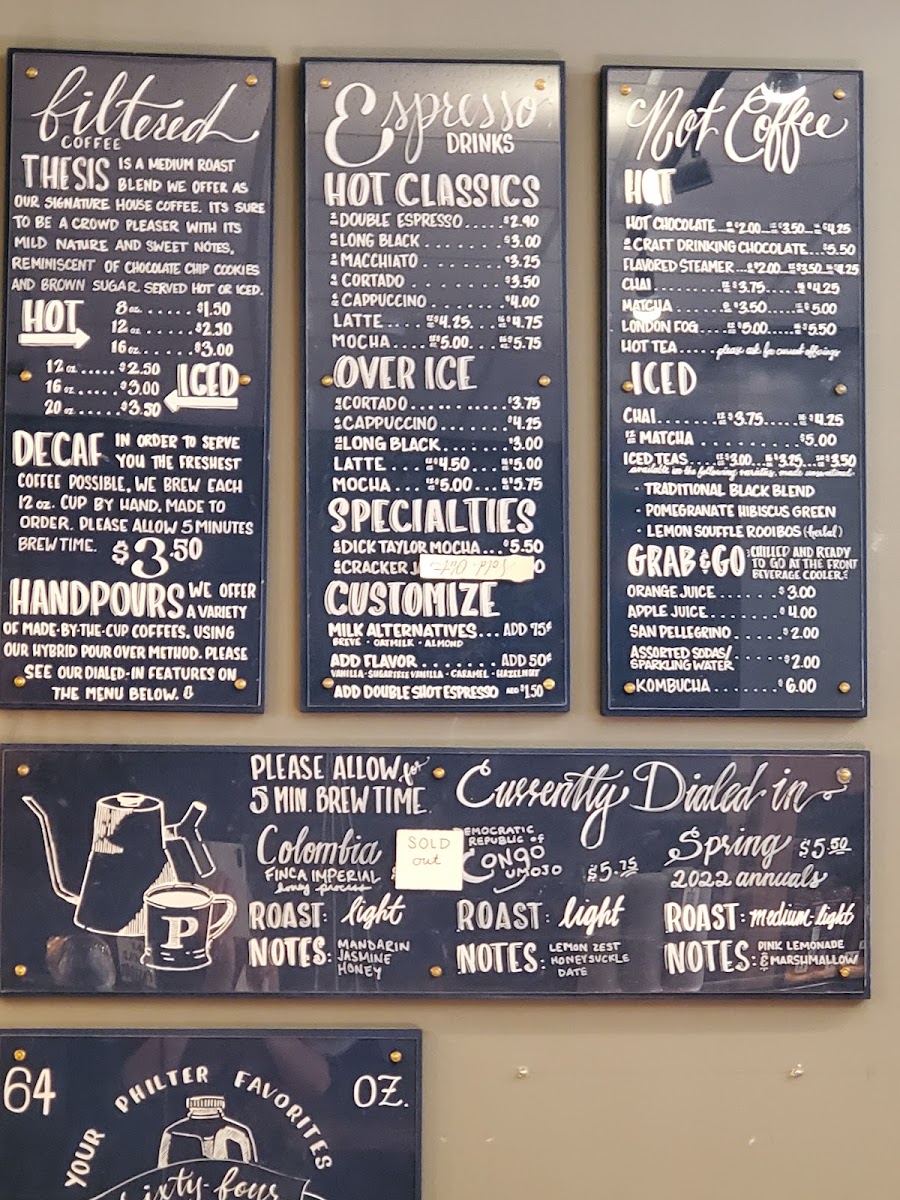 filtered
COFFEE
THESIS IS A MEDIUM ROAST
BLEND WE OFFER AS
OUR SIGNATURE HOUSE COFFEE. IT'S SURE
TO BE A CROWD PLEASER WITH ITS
MILD NATURE AND SWEET NOTES,
REMINISCENT OF CHOCOLATE CHIP COOKIES
AND BROWN SUGAR. SERVED HOT OR ICED.
HOT
8 oz. ..... $1.50
12 oz. ..... $2.50
16 oz. ..... $3.00
ICED
12 oz. ..... $2.50
16 oz. ..... $3.00
20 oz. ..... $3.50
DECAF IN ORDER TO SERVE
YOU THE FRESHEST
COFFEE POSSIBLE, WE BREW EACH
12 oz. CUP BY HAND, MADE TO
ORDER. PLEASE ALLOW 5 MINUTES
BREW TIME. $3.50
HANDPOURS WE OFFER
A VARIETY
OF MADE-BY-THE-CUP COFFEES, USING
OUR HYBRID POUR OVER METHOD. PLEASE
SEE OUR DIALED-IN FEATURES ON
THE MENU BELOW.
Espresso
DRINKS
HOT CLASSICS
DOUBLE ESPRESSO ..... $2.90
LONG BLACK ........ $3.00
MACCHIATO ........ $3.25
CORTADO ......... $3.50
CAPPUCCINO ....... $4.00
LATTE .... $4.25 ... $4.75
MOCHA .... $5.00 ... $5.75
OVER ICE
CORTADO ......... $3.75
CAPPUCCINO ....... $4.25
LONG BLACK ....... $3.00
LATTE .... $4.50 .... $5.00
MOCHA .... $5.00 ... $5.75
SPECIALTIES
DICK TAYLOR MOCHA ... $5.50
CRACKER J Sold Out 0
CUSTOMIZE
MILK ALTERNATIVES ... ADD 75¢
BREVE · OATMILK · ALMOND
ADD FLAVOR ........ ADD 50¢
VANILLA · SUGARFREE VANILLA · CARAMEL · HAZELNUT
ADD DOUBLE SHOT ESPRESSO ADD $1.50
Not Coffee
HOT
HOT CHOCOLATE ... $2.00 ... $3.50 ... $4.25
CRAFT DRINKING CHOCOLATE ... $5.50
FLAVORED STEAMER ... $2.00 $3.50 $4.25
CHAI ........ $3.75 .... $4.25
MATCHA ...... $3.50 .... $5.00
LONDON FOG .... $5.00 .... $5.50
HOT TEA ..... please ask for current offerings
ICED
CHAI ....... $3.75 .... $4.25
MATCHA .......... $5.00
ICED TEAS ... $3.00 ... $3.25 ... $3.50
available in the following varieties, made unsweetened
· TRADITIONAL BLACK BLEND
· POMEGRANATE HIBISCUS GREEN
· LEMON SOUFFLE ROOIBOS (herbal)
GRAB & GO CHILLED AND READY
TO GO AT THE FRONT
BEVERAGE COOLER.
ORANGE JUICE ...... $3.00
APPLE JUICE ....... $4.00
SAN PELLEGRINO ..... $2.00
ASSORTED SODAS/
SPARKLING WATER ..... $2.00
KOMBUCHA ....... $6.00
PLEASE ALLOW for
5 MIN. BREW TIME
Currently Dialed in
Colombia
FINCA IMPERIAL
honey process
SOLD
out
ROAST: light
NOTES: MANDARIN
JASMINE
HONEY
DEMOCRATIC
REPUBLIC of
CONGO
UMOJO $5.75
ROAST: light
NOTES: LEMON ZEST
HONEYSUCKLE
DATE
Spring $5.50
2022 annuals
ROAST: medium-light
NOTES: PINK LEMONADE
& MARSHMALLOW
P
64 OZ.
YOUR PHILTER FAVORITES
sixty-four